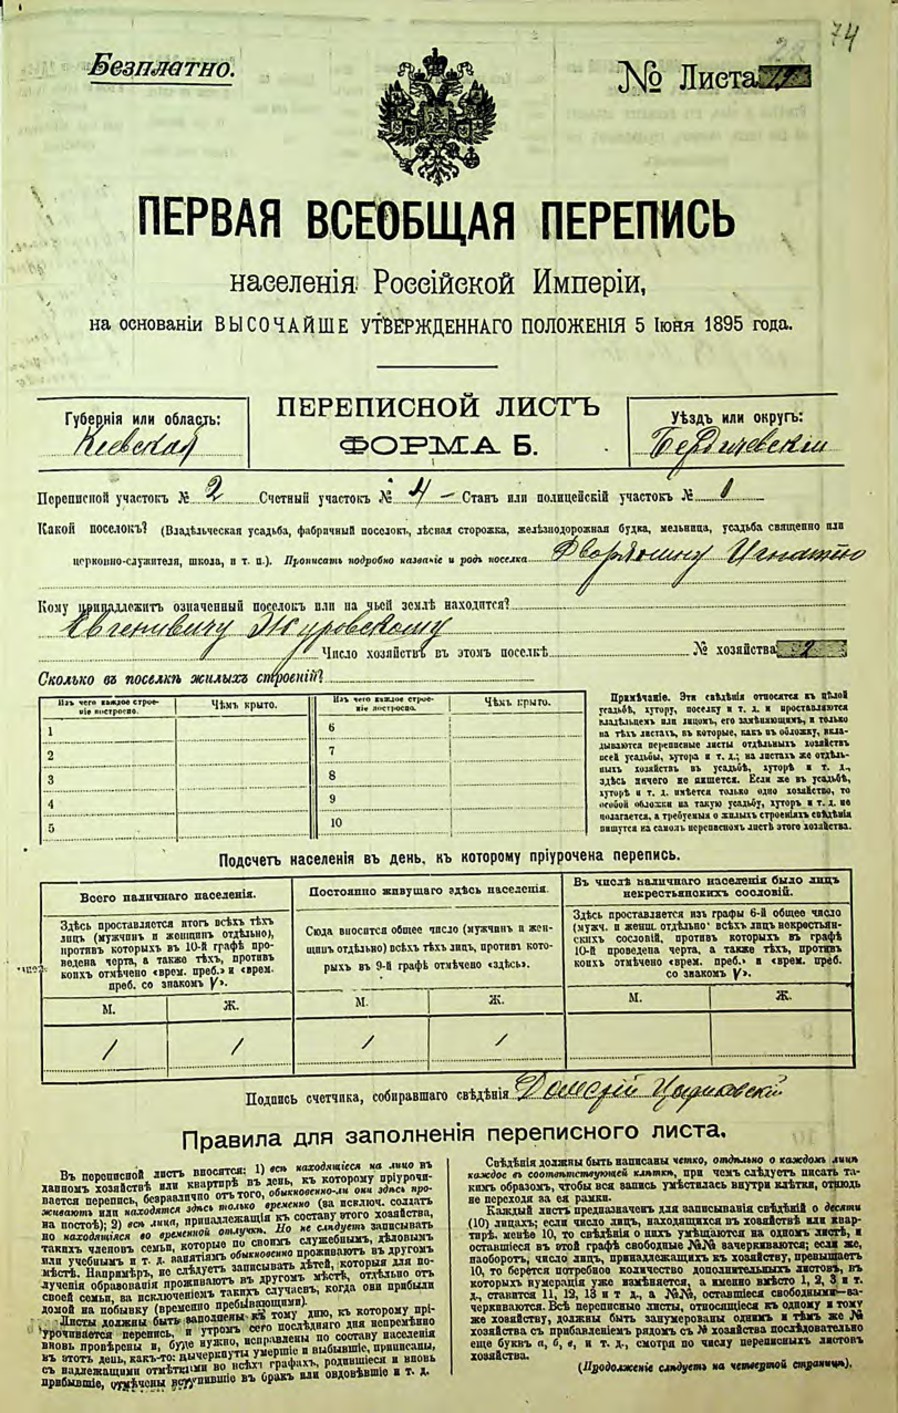 74
Безплатно.
№ Листа
ПЕРВАЯ ВСЕОБЩАЯ ПЕРЕПИСЬ
населенія Россійской Имперіи,
на основаніи ВЫСОЧАЙШЕ УТВЕРЖДЕННАГО ПОЛОЖЕНІЯ 5 Іюня 1895 года.
Губернія или область:
Кіевская
ПЕРЕПИСНОЙ ЛИСТЪ
ФОРМА Б.
Уѣздъ или округъ:
Бердичевскій
Переписной участокъ № 2 Счетный участокъ № 4 – Станъ или полицейскій участокъ № 1
Какой поселокъ? (Владѣльческая усадьба, фабричный поселокъ, лѣсная сторожка, желѣзнодорожная будка, мельница, усадьба священно или
церковно-служителя, школа, и т. п.). Прописать подробно названіе и родъ поселка Дворянину Игнатію
Кому принадлежитъ означенный поселокъ или на чьей землѣ находится?
Евгеніевичу Журовскому
Число хозяйствъ въ этомъ поселкѣ № хозяйства 2
Сколько въ поселкѣ жилыхъ строеній?
Изъ чего каждое строе-
ніе построено.
Чѣмъ крыто.
Изъ чего каждое строе-
ніе построено.
Чѣмъ крыто.
1 6
2 7
3 8
4 9
5 10
Примѣчаніе. Эти свѣдѣнія относятся къ цѣлой
усадьбѣ, хутору, поселку и т. д. и проставляются
владѣльцемъ или лицомъ, его замѣняющимъ, и только
на тѣхъ листахъ, въ которые, какъ въ обложку, вкла-
дываются переписные листы отдѣльныхъ хозяйствъ
всей усадьбы, хутора и т. д.; на листахъ же отдѣль-
ныхъ хозяйствъ въ усадьбѣ, хуторѣ и т. д.,
здѣсь ничего не пишется. Если же въ усадьбѣ,
хуторѣ и т. д. имѣется только одно хозяйство, то
особой обложки на такую усадьбу, хуторъ и т. д. не
полагается, а требуемыя о жилыхъ строеніяхъ свѣдѣнія
пишутся на самомъ переписномъ листѣ этого хозяйства.
Подсчетъ населенія въ день, къ которому пріурочена перепись.
Всего наличнаго населенія.
Здѣсь проставляется итогъ всѣхъ тѣхъ
лицъ (мужчинъ и женщинъ отдѣльно),
противъ которыхъ въ 10-й графѣ про-
ведена черта, а также тѣхъ, противъ
коихъ отмѣчено «врем. преб.» и «врем.
преб. со знакомъ V».
М. Ж.
1 1
Постоянно живущаго здѣсь населенія.
Сюда вносится общее число (мужчинъ и жен-
щинъ отдѣльно) всѣхъ тѣхъ лицъ, противъ кото-
рыхъ въ 9-й графѣ отмѣчено «здѣсь».
М. Ж.
1 1
Въ числѣ наличнаго населенія было лицъ
некрестьянскихъ сословій.
Здѣсь проставляется изъ графы 6-й общее число
(мужч. и женщ. отдѣльно) всѣхъ лицъ некрестьян-
скихъ сословій, противъ которыхъ въ графѣ
10-й проведена черта, а также тѣхъ, противъ
коихъ отмѣчено «врем. преб.» и «врем. преб.
со знакомъ V».
М. Ж.
Подпись счетчика, собиравшаго свѣдѣнія
Правила для заполненія переписного листа.
Въ переписной листъ вносятся: 1) всѣ находящіеся на лицо въ
данномъ хозяйствѣ или квартирѣ въ день, къ которому пріурочи-
вается перепись, безразлично отъ того, обыкновенно-ли они здѣсь про-
живаютъ или находятся здѣсь только временно (за исключ. солдатъ
на постоѣ); 2) всѣ лица, принадлежащія къ составу этого хозяйства,
но находящіяся во временной отлучкѣ. Но не слѣдуетъ записывать
такихъ членовъ семьи, которые по своимъ служебнымъ, дѣловымъ
или учебнымъ и т. д. занятіямъ обыкновенно проживаютъ въ другомъ
мѣстѣ. Напримѣръ, не слѣдуетъ записывать дѣтей, которыя для по-
лученія образованія проживаютъ въ другомъ мѣстѣ, отдѣльно отъ
своей семьи, за исключеніемъ такихъ случаевъ, когда они прибыли
домой на побывку (временно пребывающими).
Листы должны быть заполнены къ тому дню, къ которому прі-
урочивается перепись, и утромъ сего послѣдняго дня непремѣнно
вновь провѣрены и, буде нужно, исправлены по составу населенія
въ этотъ день, какъ-то: вычеркнуты умершіе и выбывшіе, приписаны,
съ надлежащими отмѣтками во всѣхъ графахъ, родившіеся и вновь
прибывшіе, отмѣчены вступившіе въ бракъ или овдовѣвшіе и т. д.
Свѣдѣнія должны быть написаны четко, отдѣльно о каждомъ лицѣ
каждое въ соотвѣтствующей клѣткѣ, при чемъ слѣдуетъ писать та-
кимъ образомъ, чтобы вся запись умѣстилась внутри клѣтки, отнюдь
не переходя за ея рамки.
Каждый листъ предназначенъ для записыванія свѣдѣній о десяти
(10) лицахъ; если число лицъ, находящихся въ хозяйствѣ или квар-
тирѣ, менѣе 10, то свѣдѣнія о нихъ умѣщаются на одномъ листѣ, и
оставшіеся въ этой графѣ свободные №№ зачеркиваются; если же,
наоборотъ, число лицъ, принадлежащихъ къ хозяйству, превышаетъ
10, то берется потребное количество дополнительныхъ листовъ, въ
которыхъ нумерація уже измѣняется, а именно вмѣсто 1, 2, 3 и т.
д., ставится 11, 12, 13 и т д., а №№, оставшіеся свободными—за-
черкиваются. Всѣ переписные листы, относящіеся къ одному и тому
же хозяйству, должны быть занумерованы однимъ и тѣмъ же №
хозяйства съ прибавленіемъ рядомъ съ № хозяйства послѣдовательно
еще буквъ а, б, в, и т. д., смотря по числу переписныхъ листовъ
хозяйства.
(Продолженіе слѣдуетъ на четвертой страницѣ).